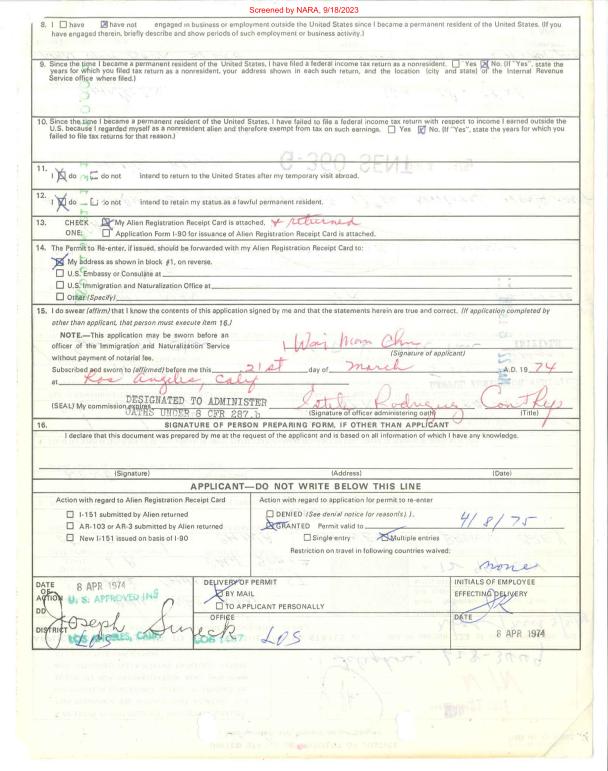 Screened by NARA, 9/18/2023
8. I ☐ have ☒ have not engaged in business or employment outside the United States since I became a permanent resident of the United States. (If you
have engaged therein, briefly describe and show periods of such employment or business activity.)
9. Since the time I became a permanent resident of the United States, I have filed a federal income tax return as a nonresident. ☐ Yes ☒ No. (If "Yes", state the
years for which you filed tax return as a nonresident, your address shown in each such return, and the location (city and state) of the Internal Revenue
Service office where filed.)
10. Since the time I became a permanent resident of the United States, I have failed to file a federal income tax return with respect to income I earned outside the
U.S. because I regarded myself as a nonresident alien and therefore exempt from tax on such earnings. ☐ Yes ☒ No. (If "Yes", state the years for which you
failed to file tax returns for that reason.)
G-360 SENT
11. I ☒ do ☐ do not intend to return to the United States after my temporary visit abroad.
12. I ☒ do ☐ do not intend to retain my status as a lawful permanent resident.
13. CHECK ☒ My Alien Registration Receipt Card is attached. & returned
ONE: ☐ Application Form I-90 for issuance of Alien Registration Receipt Card is attached.
14. The Permit to Re-enter, if issued, should be forwarded with my Alien Registration Receipt Card to:
☒ My address as shown in block #1, on reverse.
☐ U.S. Embassy or Consulate at
☐ U.S. Immigration and Naturalization Office at
☐ Other (Specify)
15. I do swear (affirm) that I know the contents of this application signed by me and that the statements herein are true and correct. (If application completed by
other than applicant, that person must execute item 16.)
NOTE.—This application may be sworn before an
officer of the Immigration and Naturalization Service
without payment of notarial fee.
Wai Mom Chu
(Signature of applicant)
Subscribed and sworn to (affirmed) before me this 21st day of March A.D. 19 74
at Los Angeles, Calif
(SEAL) My commission expires DESIGNATED TO ADMINISTER
OATHS UNDER 8 CFR 287.b
Estela Rodriguez Cont Rep
(Signature of officer administering oath) (Title)
16. SIGNATURE OF PERSON PREPARING FORM, IF OTHER THAN APPLICANT
I declare that this document was prepared by me at the request of the applicant and is based on all information of which I have any knowledge.
(Signature) (Address) (Date)
APPLICANT—DO NOT WRITE BELOW THIS LINE
Action with regard to Alien Registration Receipt Card
☐ I-151 submitted by Alien returned
☐ AR-103 or AR-3 submitted by Alien returned
☐ New I-151 issued on basis of I-90
Action with regard to application for permit to re-enter
☐ DENIED (See denial notice for reason(s).).
☒ GRANTED Permit valid to 4/8/75
☐ Single entry ☒ Multiple entries
Restriction on travel in following countries waived:
none
DATE OF ACTION 8 APR 1974
U. S. APPROVED INS
DD
DISTRICT Joseph Sureck
LOS ANGELES, CALIF.
LOS
DELIVERY OF PERMIT
☒ BY MAIL
☐ TO APPLICANT PERSONALLY
OFFICE
LOS
INITIALS OF EMPLOYEE
EFFECTING DELIVERY
DATE
8 APR 1974